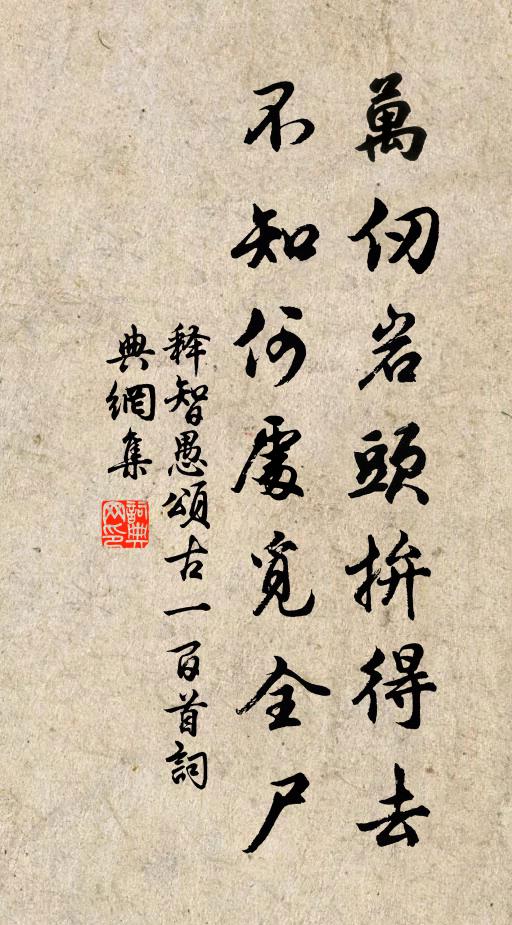 萬仞岩頭拚得去
不知何處覓全尸
释智愚頌古一百首詞
典網集
詞典
网印